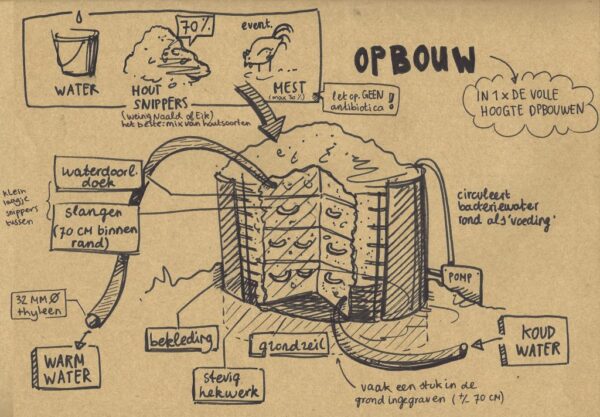 WATER
70%
HOUT
SNIPPERS
(weinig Naald of Eik)
het beste: mix van houtsoorten
event.
MEST
(max 30%)
let op: GEEN
antibiotica!
OPBOUW
IN 1 x DE VOLLE
HOOGTE OPBOUWEN
waterdoorl.
doek
klein
laagje
snippers
tussen
slangen
(70 CM binnen
rand)
32 MM Ø
thyleen
WARM
WATER
bekleding
stevig
hekwerk
grondzeil
circuleert
bacteriewater
rond als 'voeding'
POMP
KOUD
WATER
vaak een stuk in de
grond ingegraven (+/- 70 CM)